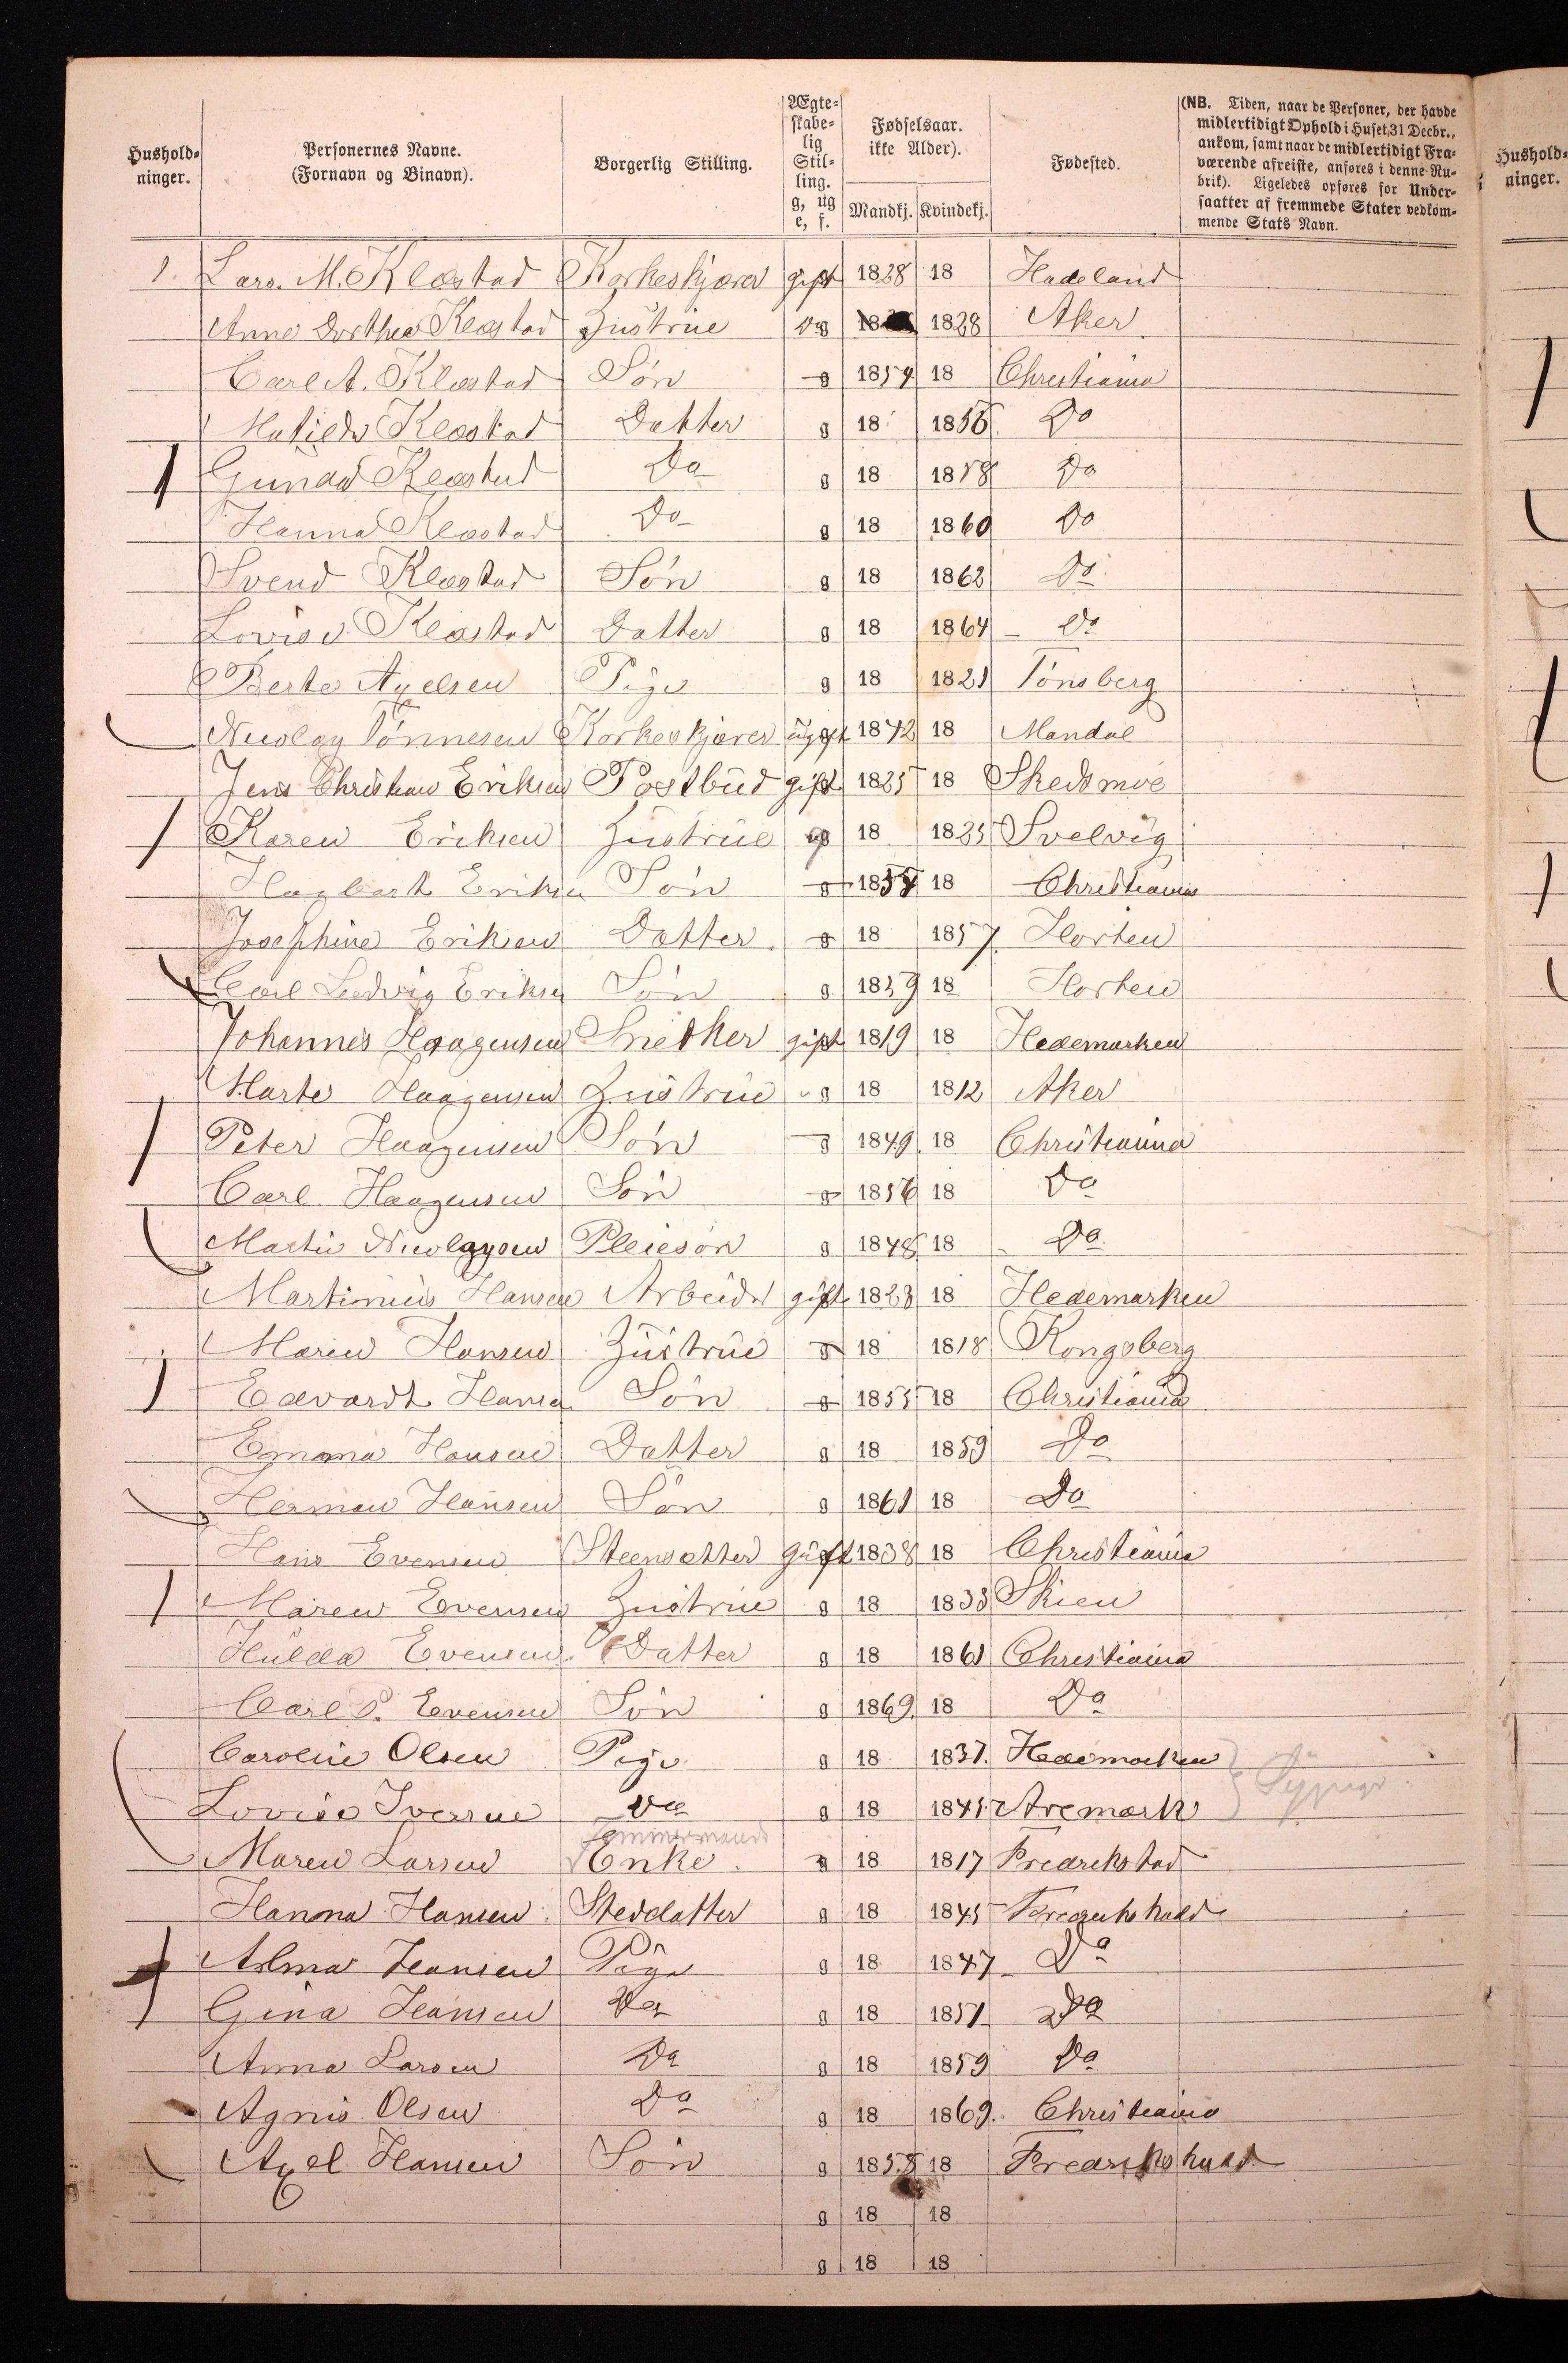 Hushold-
ninger.
Personernes Navne.
(Fornavn og Binavn).
Borgerlig Stilling.
Ægte-
skabe-
lig
Stil-
ling.
g, ug
e, f.
Fødselsaar.
ikke Alder).
Mandkj. Kvindekj.
Fødested.
(NB. Tiden, naar de Personer, der havde
midlertidigt Ophold i Huset, 31 Decbr.,
ankom, samt naar de midlertidigt Fra-
værende afreiste, anføres i denne Ru-
brik). Ligeledes opføres for Under-
saatter af fremmede Stater vedkom-
mende Stats Navn.
Hushold-
ninger.
1. Lars. M. Klæstad Korkeskjærer gift 1828 18 Hadeland
Anne Dorthea Klæstad Hustrue 18 1828 Aker
Carl A. Klæstad Søn g 1854 18 Christiania
Matilde Klæstad Datter g 18 1856 Do
Gunda Klæstad Do g 18 1858 Do
Hanna Klæstad Do g 18 1860 Do
Svend Klæstad Søn g 18 1862 Do
Lovise Klæstad Datter g 18 1864 Do
Berte Axelsen Pige g 18 1821 Tønsberg
Nicolay Tønnesen Korkeskjærer ugift 1842 18 Mandal
Jens Christian Eriksen Postbud gift 1825 18 Skedsmoe
Karen Eriksen Hustrue g 18 1825 Svelvig
Hagbart Eriksen Søn g 1854 18 Christiania
Josephine Eriksen Datter g 18 1857. Horten
Carl Ludvig Eriksen Søn g 1859 18 Horten
Johannes Haagensen Snedker gift 1819 18 Hedemarken
Marte Haagensen Hustrue g 18 1812 Aker
Peter Haagensen Søn g 1849. 18 Christiania
Carl Haagensen Søn g 1856 18 Do
Martin Nicolaysen Pleiesøn g 1848 18 Do
Martinius Hansen Arbeider gift 1823 18 Hedemarken
Maren Hansen Hustrue g 18 1818 Kongsberg
Edvardt Hansen Søn g 1855 18 Christiania
Emma Hansen Datter g 18 1859 Do
Herman Hansen Søn g 1861 18 Do
Hans Evensen Steensætter gift 1838 18 Christiania
Maren Evensen Hustrue g 18 1838 Skien
Hulda Evensen Datter g 18 1861 Christiania
Carl P. Evensen Søn g 1869. 18 Do
Caroline Olsen Pige g 18 1837. Hedemarken
Lovise Iversen Do g 18 1845 Aremark
Sypiger
Tømmermands
Maren Larsen Enke g 18 1817 Fredrikstad
Hanna Hansen Steddatter g 18 1845 Fredrikshald
Alma Hansen Pige g 18 1847 Do
Gina Hansen Do g 18 1851 Do
Anna Larsen Do g 18 1859 Do
Agnis Olsen Do g 18 1869. Christiania
Axel Hansen Søn g 1858 18 Fredrikshald
g 18 18
g 18 18